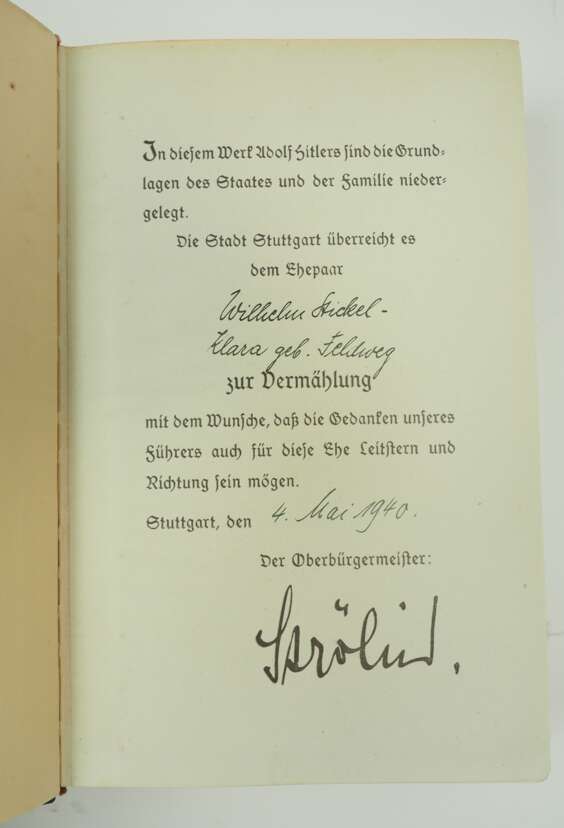 In diesem Werk Adolf Hitlers sind die Grund-
lagen des Staates und der Familie nieder-
gelegt.
Die Stadt Stuttgart überreicht es
dem Ehepaar
Wilhelm Stickel -
Klara geb. Feldweg
zur Vermählung
mit dem Wunsche, daß die Gedanken unseres
Führers auch für diese Ehe Leitstern und
Richtung sein mögen.
Stuttgart, den 4. Mai 1940.
Der Oberbürgermeister:
Strölin.